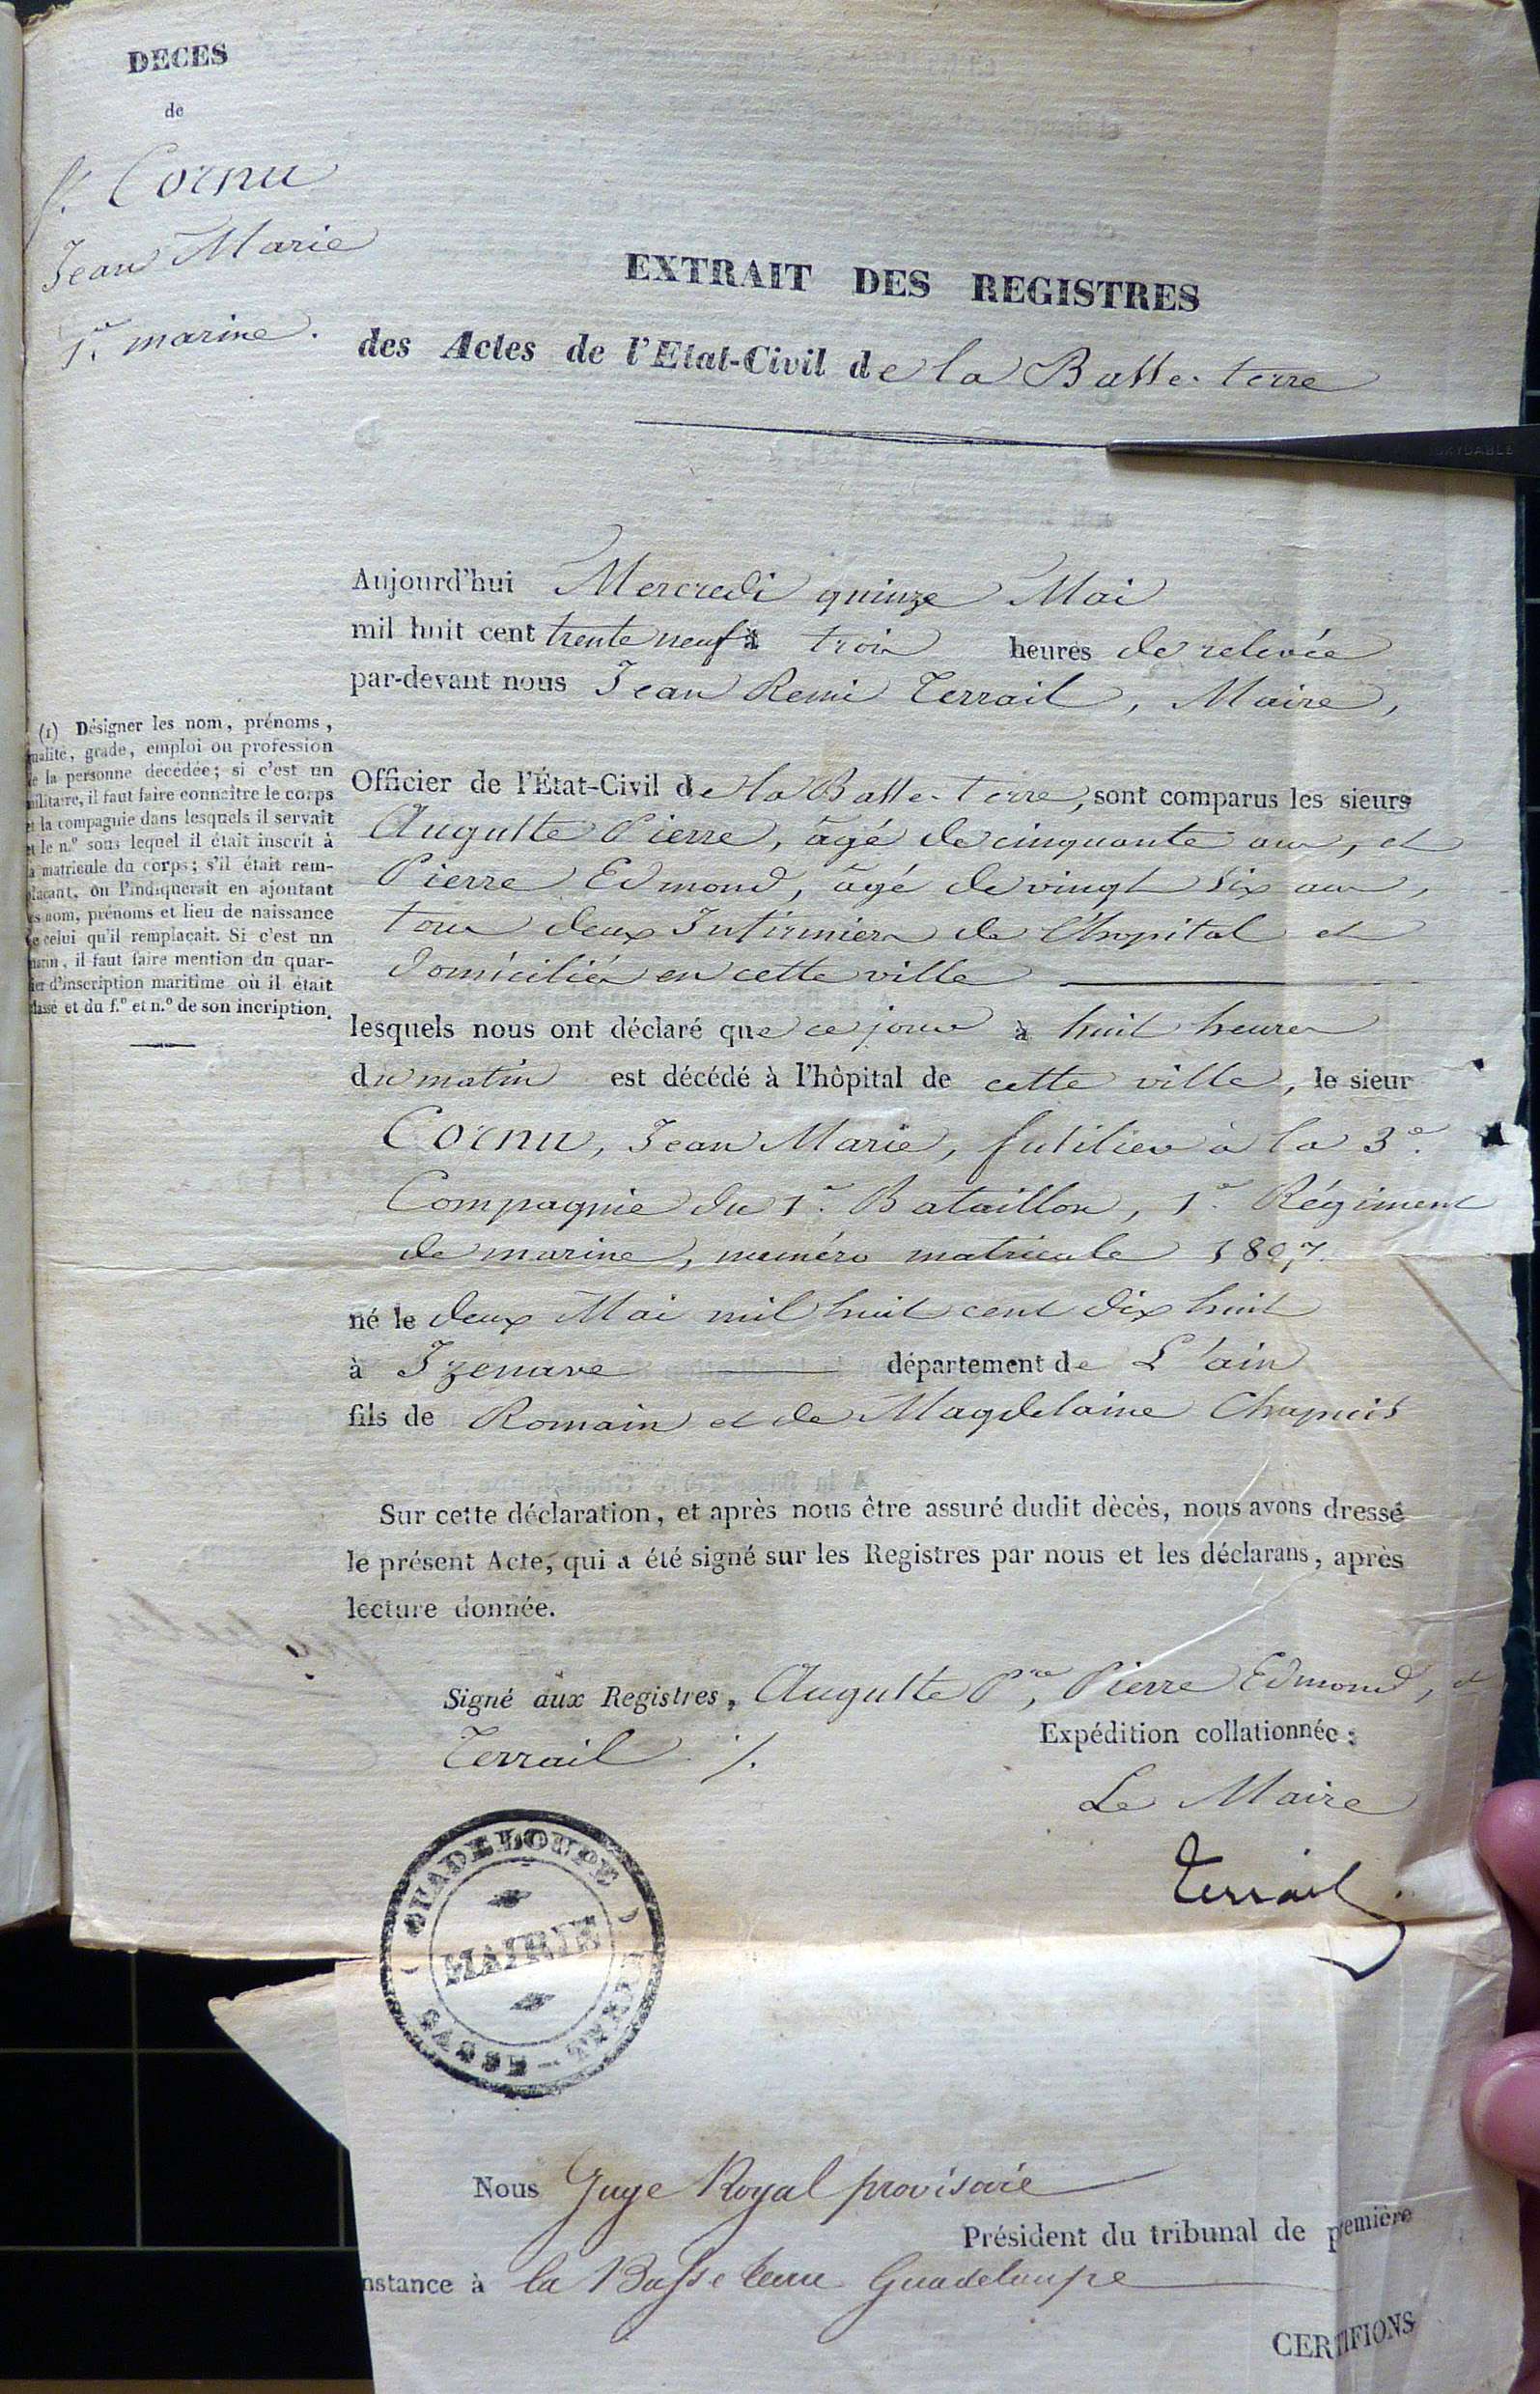 DECES
de
s.r Cornu
Jean Marie
1.er marine.
EXTRAIT DES REGISTRES
des Actes de l'Etat-Civil de la Basse-terre
INOXYDABLE
Aujourd'hui Mercredi quinze Mai
mil huit cent trente neuf à trois heures de relevée
par-devant nous Jean Remi Terrail, Maire,
Officier de l'État-Civil de la Basse-terre, sont comparus les sieurs
Auguste Pierre, âgé de cinquante ans, et
Pierre Edmond, âgé de vingt six ans,
tous deux Infirmiers de l'hopital et
domiciliés en cette ville
lesquels nous ont déclaré que ce jour à huit heures
du matin est décédé à l'hôpital de cette ville, le sieur
Cornu, Jean Marie, fusilier à la 3.e
Compagnie du 1.er Bataillon, 1.er Régiment
de marine, numéro matricule 1807.
né le deux Mai mil huit cent dix huit
à Izenave département de L'ain
fils de Romain et de Magdelaine Chapuis
Sur cette déclaration, et après nous être assuré dudit dècès, nous avons dressé
le présent Acte, qui a été signé sur les Registres par nous et les déclarans, après
lecture donnée.
Signé aux Registres, Auguste P.re, Pierre Edmond, et
Terrail ./.
Expédition collationnée:
Le Maire
Terrail
(1) Désigner les nom, prénoms,
qualité, grade, emploi ou profession
de la personne décédée; si c'est un
militaire, il faut faire connoître le corps
et la compagnie dans lesquels il servait
et le n.º sous lequel il était inscrit à
la matricule du corps; s'il était rem-
plaçant, on l'indiquerait en ajoutant
les nom, prénoms et lieu de naissance
de celui qu'il remplaçait. Si c'est un
marin, il faut faire mention du quar-
ier d'inscription maritime où il était
classé et du f.º et n.º de son incription.
GUADELOUPE
MAIRIE
BASSE-TERRE
Nous Juge Royal provisoire
Président du tribunal de première
nstance à la Basse terre Guadeloupe
CERTIFIONS